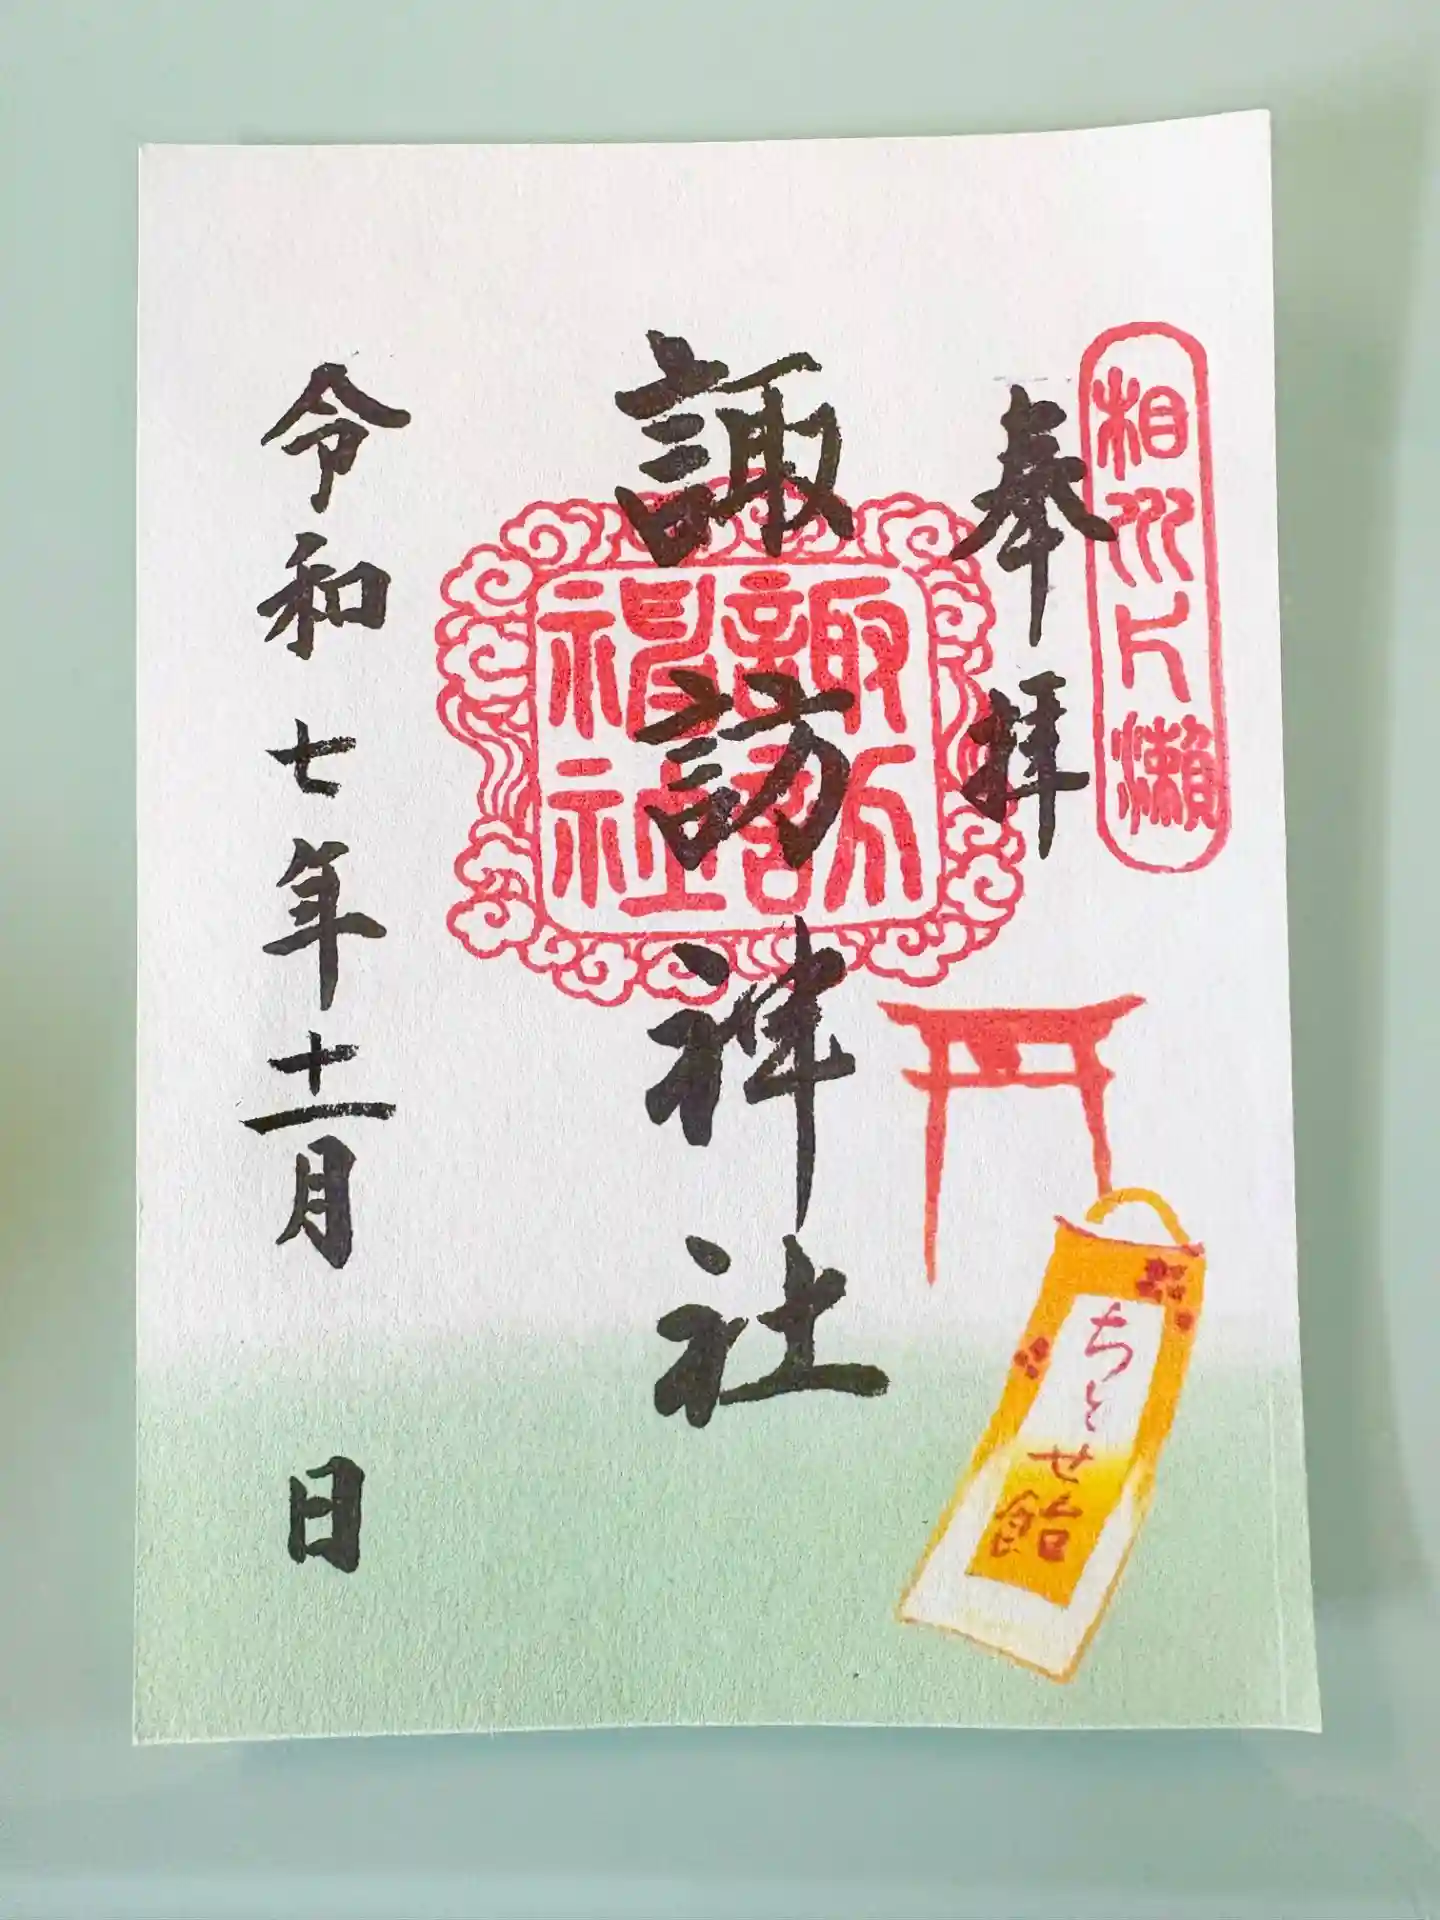 相州片瀬
奉拝
諏訪神社
諏訪
神社
令和七年十一月　日
ちとせ飴